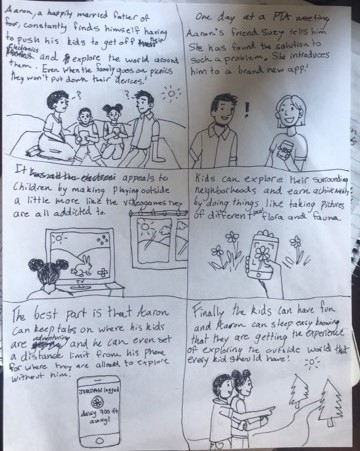 Aaron, a happily married father of
four, constantly finds himself having
to push his kids to get off their
electronics
and explore the world around
them. Even when the family goes on picnics
they won't put down their devices!
? ?
One day at a PTA meeting,
Aaron's friend Suzy tells him
She has found the solution to
such a problem. She introduces
him to a brand new app!
!
It appeals to
children by making playing outside
a little more like the videogames they
are all addicted to.
Kids can explore their surrounding
neighborhoods and earn achievements
by doing things like taking pictures
of different flora and fauna.
The best part is that Aaron
can keep tabs on where his kids
are adventuring and he can even set
a distance limit from his phone
for where they are allowed to explore
without him.
JORDAN logged
daisy 900 ft
away!
Finally the kids can have fun
and Aaron can sleep easy knowing
that they are getting the experience
of exploring the outside world that
every kid should have!